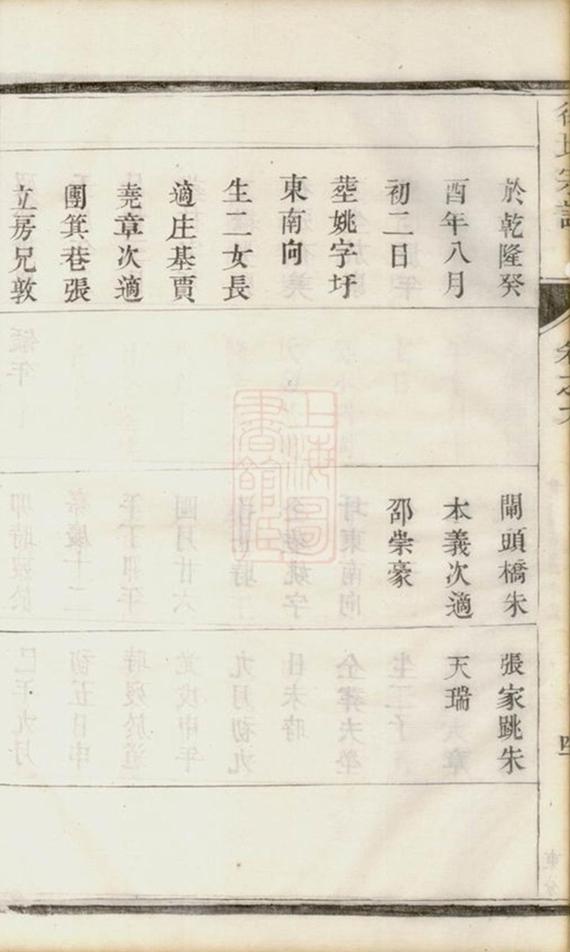 於乾隆癸
酉年八月
初二日
塟姚字圩
東南向
生二女長
適庄基賈
堯章次適
團箕巷張
立房兄敦
閘頭橋朱
本義次適
邵崇豪
張家跳朱
天瑞
上海圖書館藏